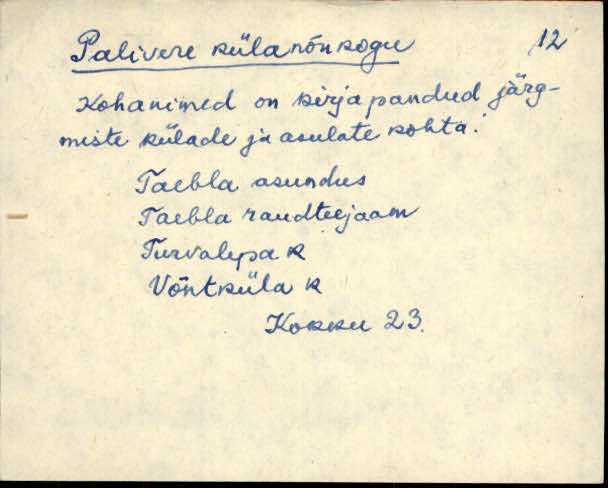 Palivere külanõukogu 12
Kohanimed on kirja pandud järg-
miste külade ja asulate kohta:
Taebla asundus
Taebla raudteejaam
Turvalepa k
Võntküla k
Kokku 23.